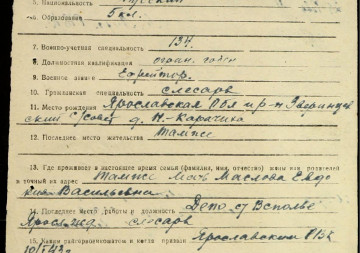 5. Национальность Русский
6. Образование 5 кл.
7. Военно-учетная специальность 134
8. Должностная квалификация годен
9. Военное звание Ефрейтор.
10. Гражданская специальность слесарь
11. Место рождения Ярославская Обл
ский С/совет д. Н-Карачиха
12. Последнее место жительства Там же
13. Где проживает в настоящее время семья (фамилия, имя, отчество) жены или родителей
и точный их адрес Там же Мать Маслова Евдо
кия Васильевна
14. Последнее место работы и должность Депо ст Всполье
Ярославль слесарь
15. Каким райвоенкоматом и когда призван Ярославским РВК